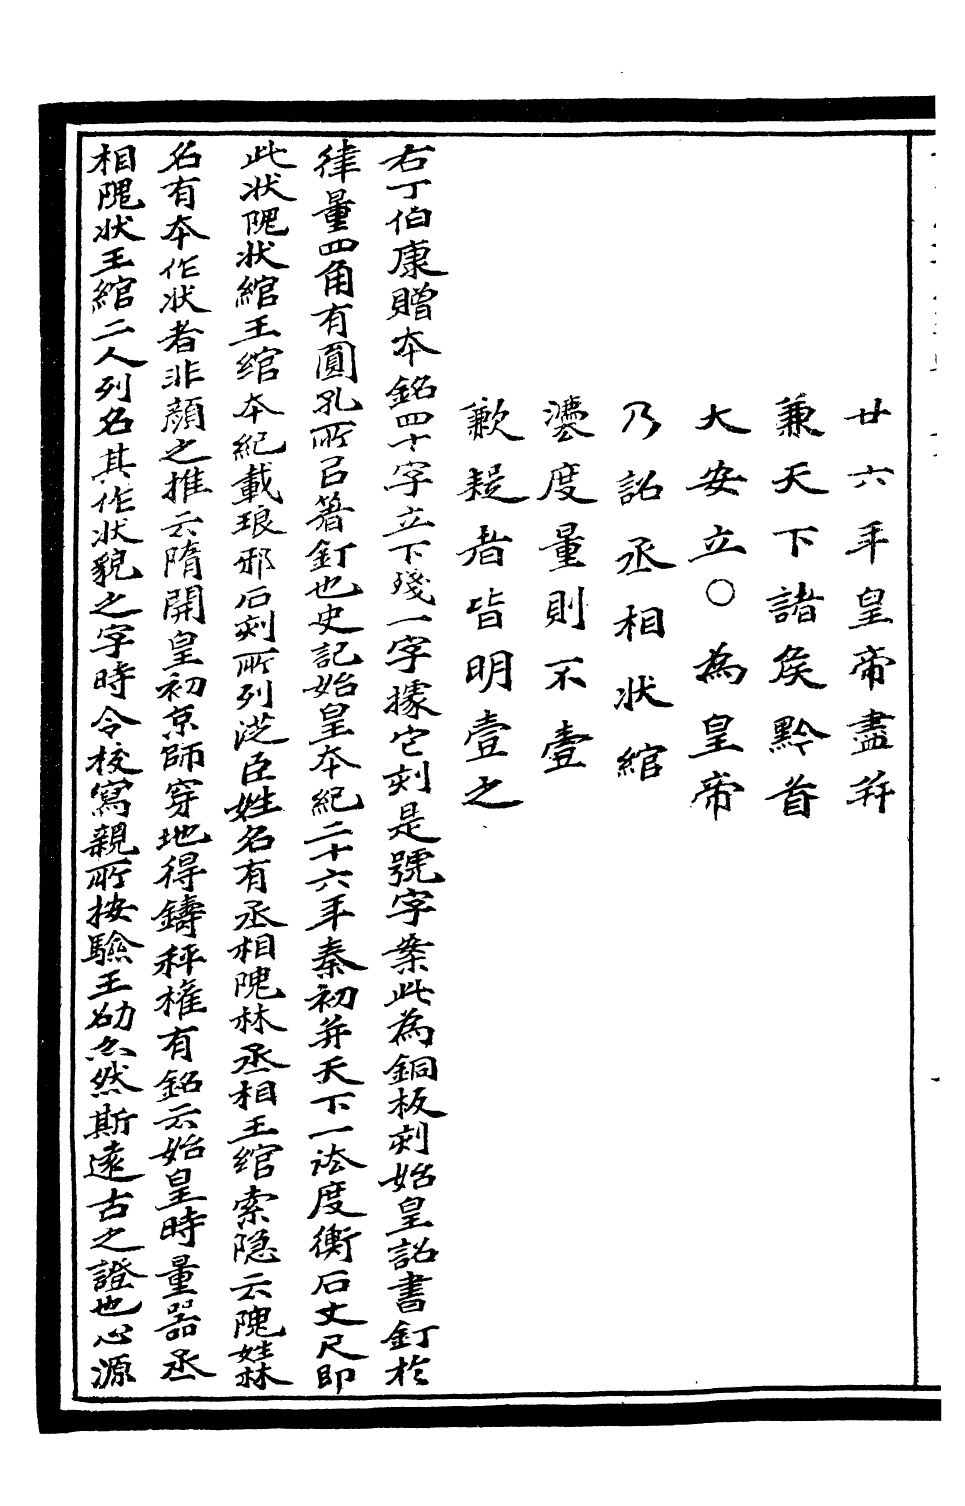 廿六年皇帝盡并
兼天下諸矦黔首
大安立○為皇帝
乃詔丞相状綰
灋度量則不壹
歉疑者皆明壹之
右丁伯康贈本銘四十字立下殘一字據它刻是號字案此為銅板刻始皇詔書釘於
律量四角有圓孔所㠯著釘也史記始皇本紀二十六年秦初并天下一法度衡石丈尺即
此状隗状綰王綰本紀載琅邪石刻所列從臣姓名有丞相隗林丞相王綰索隐云隗姓林
名有本作状者非顔之推云隋開皇初京師穿地得鑄秤權有銘云始皇時量器丞
相隗状王綰二人列名其作状貌之字時令校寫親所按驗王劭亦然斯遠古之證也心源